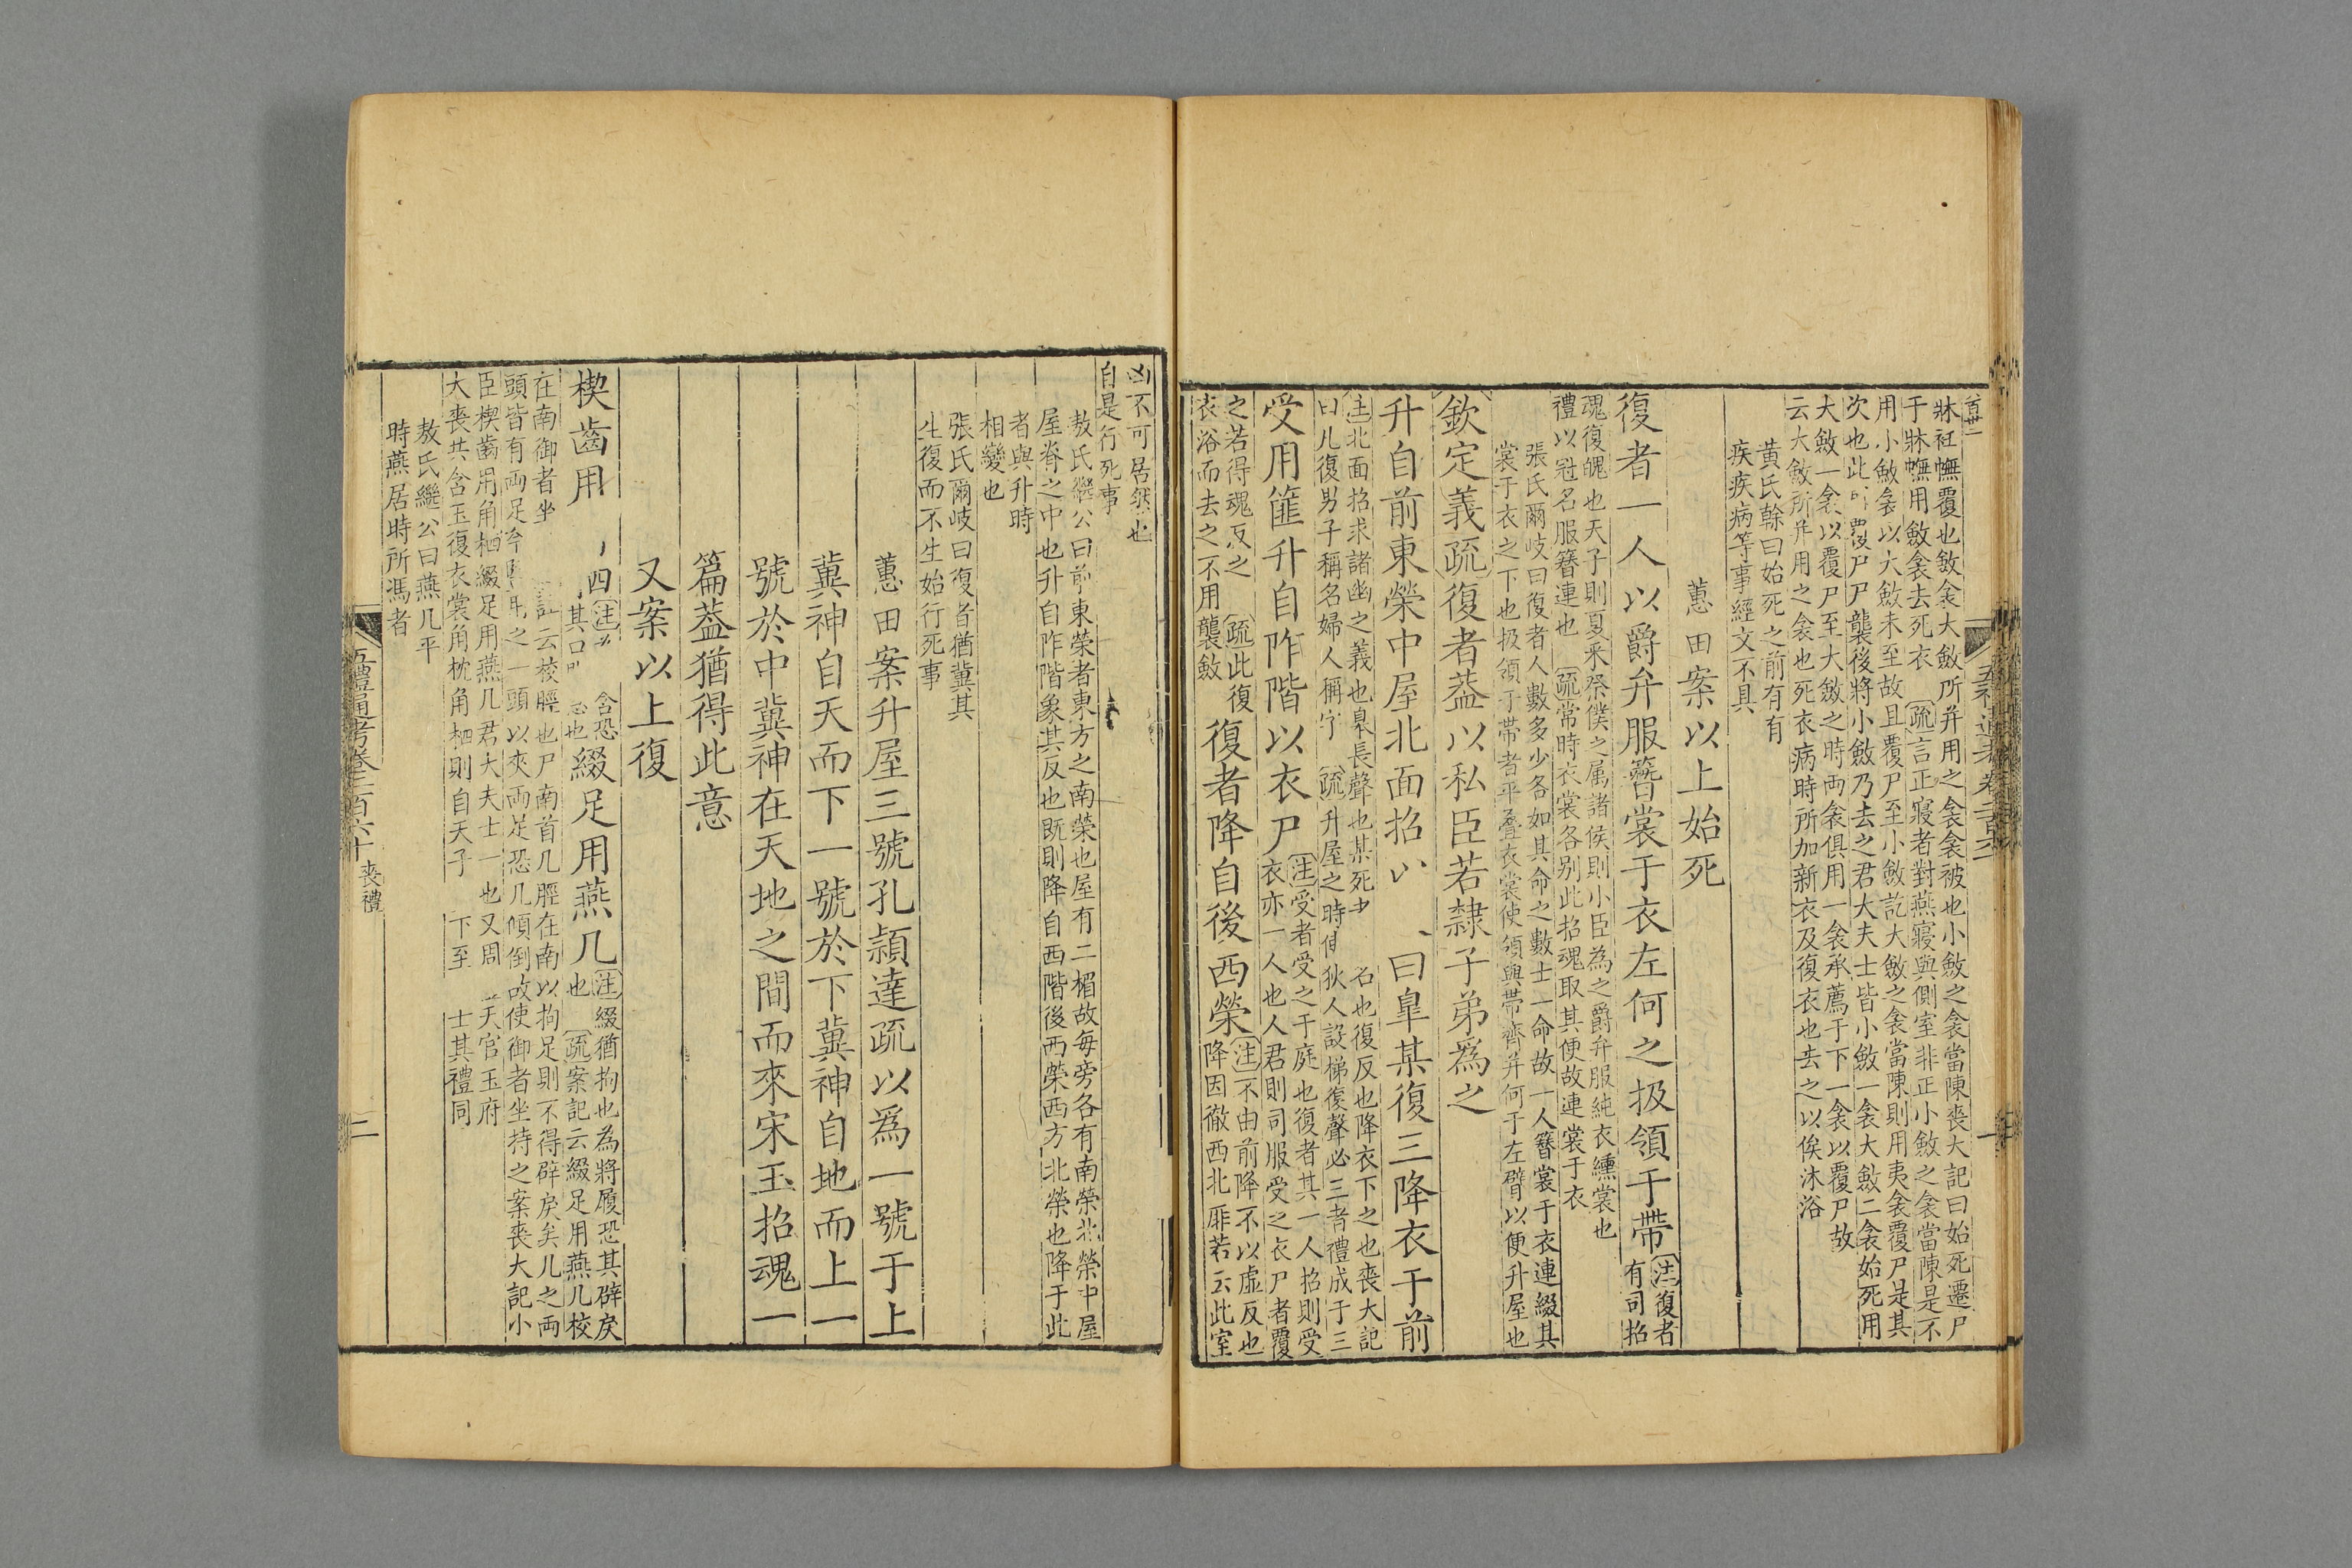 首
牀衽幠覆也斂衾大斂所并用之衾衾被也小斂之衾當陳喪大記曰始死遷尸
于牀幠用斂衾去死衣疏言正寢者對燕寢與側室非正小斂之衾當陳是不
用小斂衾以大斂未至故且覆尸至小斂訖大斂之衾當陳則用夷衾覆尸是其
次也此覆尸尸襲後將小斂乃去之君大夫士皆小斂一衾大斂二衾始死用
大斂一衾以覆尸至大斂之時兩衾俱用一衾承薦于下一衾以覆尸故
云大斂所并用之衾也死衣病時所加新衣及復衣也去之以俟沐浴
黃氏榦曰始死之前有有
疾疾病等事經文不具
蕙田案以上始死
復者一人以爵弁服簪裳于衣左何之扱領于帶
注復者
有司招
魂復魄也天子則夏采祭僕之属諸侯則小臣為之爵弁服純衣纁裳也
禮以冠名服簪連也疏常時衣裳各别此招魂取其便故連裳于衣
張氏爾岐曰復者人數多少各如其命之數士一命故一人簪裳于衣連綴其
裳于衣之下也扱領于帶者平疊衣裳使領與帶齊并何于左臂以便升屋也
欽定義疏復者葢以私臣若隸子弟爲之
升自前東榮中屋北面招曰臯某復三降衣于前
北面招求諸幽之義也臯長聲也某死名也復反也降衣下之也喪大記
曰凡復男子稱名婦人稱字疏升屋之時狄人設梯復聲必三者禮成于三
受用篚升自阼階以衣尸
注受者受之于庭也復者其一人招則受
衣亦一人也人君則司服受之衣尸者覆
之若得魂反之疏此復
衣浴而去之不用襲斂
復者降自後西榮
注不由前降不以虛反也
降因徹西北厞若云此室
五禮通考卷二百六十
凶不可居然也
自是行死事
敖氏繼公曰前東榮者東方之南榮也屋有二楣故每旁各有南榮北榮中屋
屋脊之中也升自阼階象其反也既則降自西階後西榮西方北榮也降于此
者與升時
相變也
張氏爾岐曰復者猶冀其
生復而不生始行死事
蕙田案升屋三號孔穎達疏以爲一號于上
冀神自天而下一號於下冀神自地而上一
號於中冀神在天地之間而來宋玉招魂一
篇葢猶得此意
又案以上復
楔齒用四
注
其口
含恐
也
綴足用燕几
注綴猶拘也為將履恐其辟戾
也疏案記云綴足用燕几校
在南御者坐云校脛也尸南首几脛在南以拘足則不得辟戾矣几之兩
頭皆有両足之一頭以夾両足恐几傾倒故使御者坐持之案喪大記小
臣楔齒用角柶綴足用燕几君大夫士一也又周天官玉府
大喪共含玉復衣裳角枕角柶則自天子下至士其禮同
敖氏繼公曰燕几平
時燕居時所馮者
五禮通考卷二百六十
喪禮
二